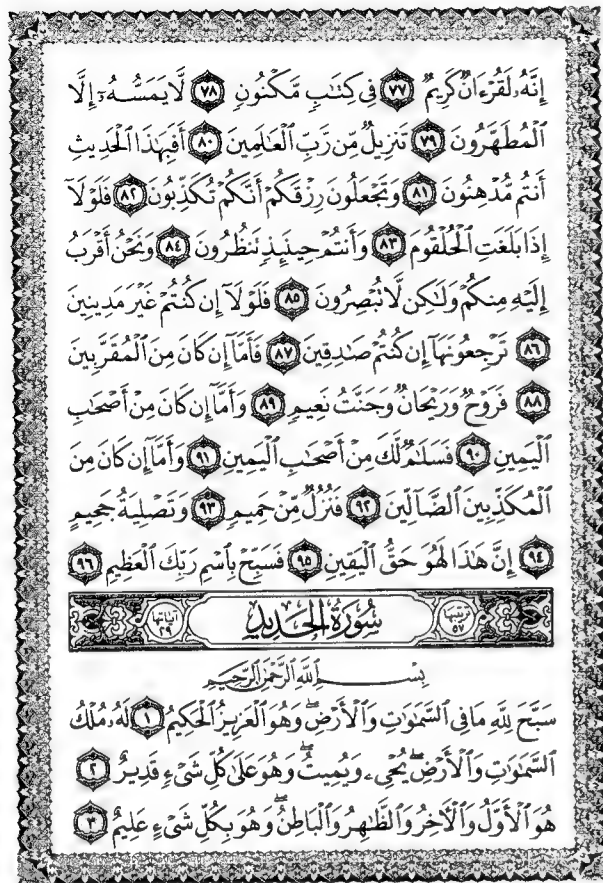 إِنَّهُۥ لَقُرْءَانٌ كَرِيمٌ ٧٧ فِى كِتَـٰبٍ مَّكْنُونٍ ٧٨ لَّا يَمَسُّهُۥٓ إِلَّا
ٱلْمُطَهَّرُونَ ٧٩ تَنزِيلٌ مِّن رَّبِّ ٱلْعَـٰلَمِينَ ٨٠ أَفَبِهَـٰذَا ٱلْحَدِيثِ
أَنتُم مُّدْهِنُونَ ٨١ وَتَجْعَلُونَ رِزْقَكُمْ أَنَّكُمْ تُكَذِّبُونَ ٨٢ فَلَوْلَآ
إِذَا بَلَغَتِ ٱلْحُلْقُومَ ٨٣ وَأَنتُمْ حِينَئِذٍ تَنظُرُونَ ٨٤ وَنَحْنُ أَقْرَبُ
إِلَيْهِ مِنكُمْ وَلَـٰكِن لَّا تُبْصِرُونَ ٨٥ فَلَوْلَآ إِن كُنتُمْ غَيْرَ مَدِينِينَ
٨٦ تَرْجِعُونَهَآ إِن كُنتُمْ صَـٰدِقِينَ ٨٧ فَأَمَّآ إِن كَانَ مِنَ ٱلْمُقَرَّبِينَ
٨٨ فَرَوْحٌ وَرَيْحَانٌ وَجَنَّتُ نَعِيمٍ ٨٩ وَأَمَّآ إِن كَانَ مِنْ أَصْحَـٰبِ
ٱلْيَمِينِ ٩٠ فَسَلَـٰمٌ لَّكَ مِنْ أَصْحَـٰبِ ٱلْيَمِينِ ٩١ وَأَمَّآ إِن كَانَ مِنَ
ٱلْمُكَذِّبِينَ ٱلضَّآلِّينَ ٩٢ فَنُزُلٌ مِّنْ حَمِيمٍ ٩٣ وَتَصْلِيَةُ جَحِيمٍ
٩٤ إِنَّ هَـٰذَا لَهُوَ حَقُّ ٱلْيَقِينِ ٩٥ فَسَبِّحْ بِٱسْمِ رَبِّكَ ٱلْعَظِيمِ ٩٦
ترتيبها ٥٧ سُورَةُ الحَدِيدِ آياتها ٢٩
بِسْمِ ٱللَّهِ ٱلرَّحْمَـٰنِ ٱلرَّحِيمِ
سَبَّحَ لِلَّهِ مَا فِى ٱلسَّمَـٰوَٰتِ وَٱلْأَرْضِ ۖ وَهُوَ ٱلْعَزِيزُ ٱلْحَكِيمُ ١ لَهُۥ مُلْكُ
ٱلسَّمَـٰوَٰتِ وَٱلْأَرْضِ ۖ يُحْىِۦ وَيُمِيتُ ۖ وَهُوَ عَلَىٰ كُلِّ شَىْءٍ قَدِيرٌ ٢
هُوَ ٱلْأَوَّلُ وَٱلْـَٔاخِرُ وَٱلظَّـٰهِرُ وَٱلْبَاطِنُ ۖ وَهُوَ بِكُلِّ شَىْءٍ عَلِيمٌ ٣